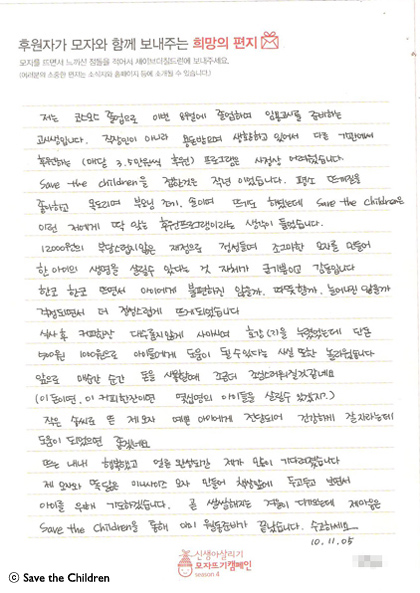 후원자가 모자와 함께 보내주는 희망의 편지
모자를 뜨면서 느끼신 점들을 적어서 세이브더칠드런에 보내주세요.
(여러분의 소중한 편지는 소식지와 홈페이지 등에 소개될 수 있습니다.)
저는 코스모스 졸업으로 이번 8월에 졸업하며 임용고사를 준비하는
고시생입니다. 직장인이 아니라 용돈받으며 생활하고 있어서 다른 기관에서
후원하는 (매달 3.5만원씩 후원) 프로그램은 사정상 어려웠습니다.
Save the children을 접한것은 작년 이었습니다. 평소 뜨개질을
좋아하고 목도리며 부모님 조끼, 손이며 뜨기도 하였는데 Save the Children은
이런 저에게 딱 맞는 후원프로그램이라는 생각이 들었습니다.
12000원의 부담스럽지않은 재정으로 정성들여 조그마한 모자를 만들어
한 아이의 생명을 살릴수 있다는 것 자체가 큰기쁨이고 감동입니다
한코 한코 뜨면서 아이에게 불편하진 않을까, 따뜻할까, 늘어나진 않을까
걱정되면서 더 정성스럽게 뜨게되었습니다
식사후 커피한잔 대수롭지않게 사마시며 호강(?)을 누렸었는데 단돈
500원 1000원으로 아이들에게 도움이 될 수 있다는 사실 또한 놀라웠습니다
앞으로 매순간 순간 돈을 사용할때 조금더 조심스러워질것같네요
(이 돈이면, 이 커피한잔이면 몇십명의 아이들을 살릴수 있겠지?)
작은 솜씨로 뜬 제 모자 예쁜 아이에게 전달되어 건강하게 잘 자라는데
도움이 되었으면 좋겠네요
뜨는 내내 행복했고 얼른 완성되기만 제가 많이 기다려졌습니다
제 모자와 똑닮은 미니사이즈 모자 만들어 책상앞에 두고두고 보면서
아이를 위해 기도하겠습니다. 곧 쌀쌀해지는 겨울이 다가오는데 제마음은
Save the Children을 통해 이미 월동준비가 끝났습니다. 수고하세요
10. 11. 05
신생아살리기
모자뜨기캠페인
season 4
ⓒ Save the Children